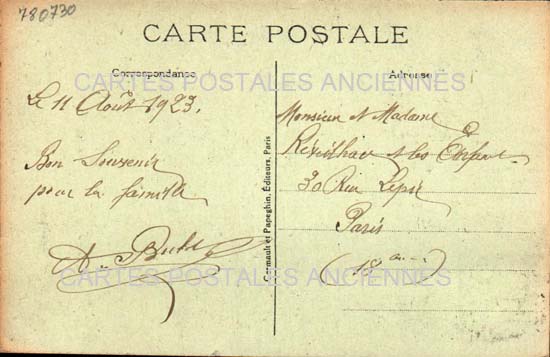 780730
CARTE POSTALE
Correspondance
Adresse
CARTES POSTALES ANCIENNES
Le 11 Août 1923.
Bon Souvenir
pour la famille
Monsieur et Madame
et les
30 Rue Lepic
Paris
Germault et Papeghin, Éditeurs, Paris
CARTES POSTALES ANCIENNES